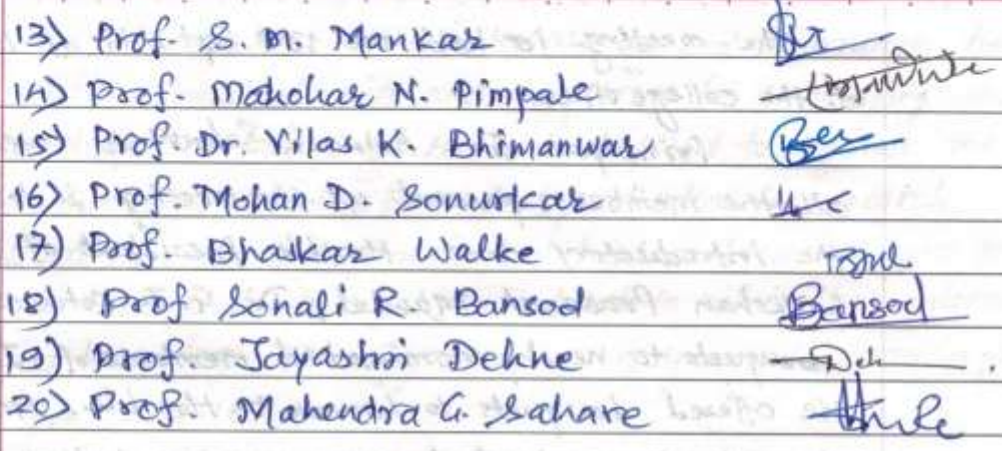 13) Prof. S. M. Mankar
14) Prof. Mahohar N. Pimpale
15) Prof. Dr. Vilas K. Bhimanwar
16) Prof. Mohan D. Sonurkar
17) Prof. Bhaskar Walke
18) Prof Sonali R. Bansod Bansod
19) Prof. Jayashri Dehne Deh
20) Prof. Mahendra G. Sahare